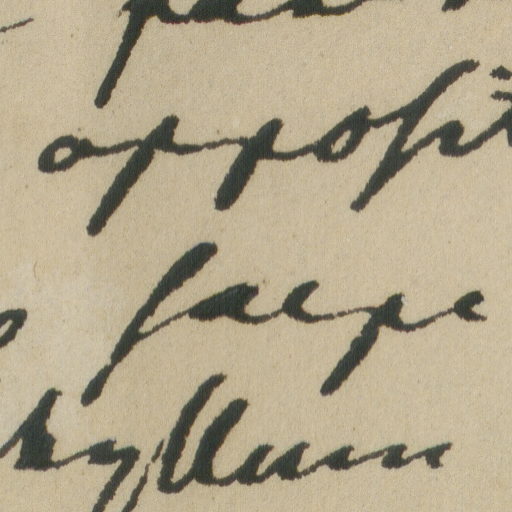 opposit
saepe
hyllum